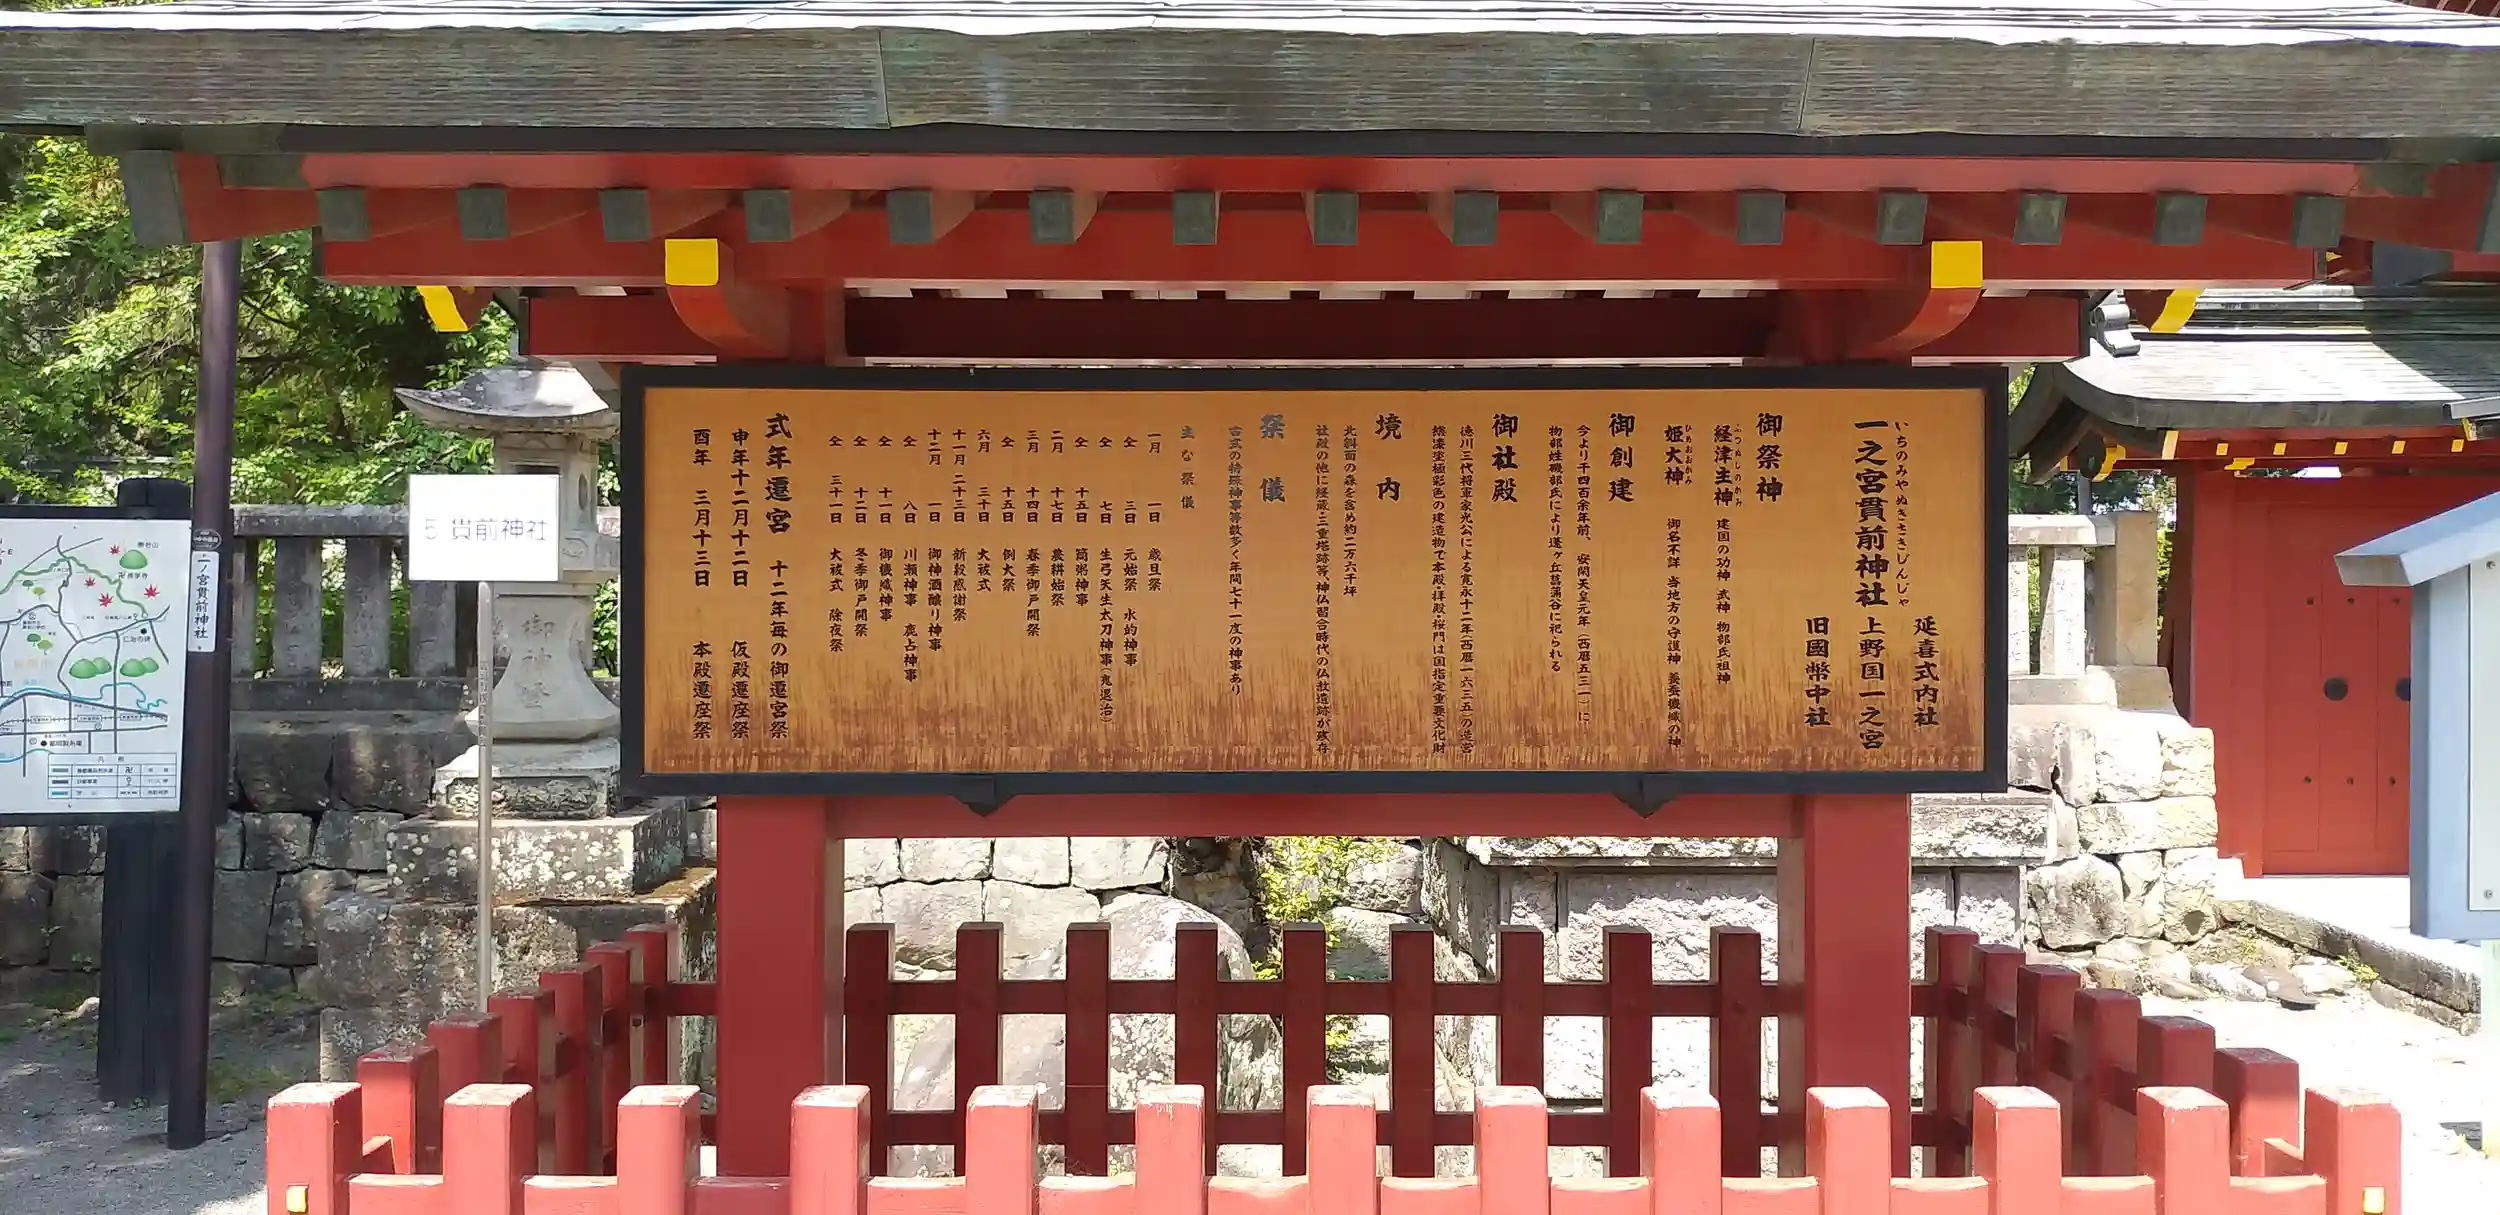 延喜式内社
いちのみやぬきさきじんじゃ
一之宮貫前神社 上野国一之宮
旧國幣中社
御祭神
ふつぬしのかみ
経津主神 建国の功神 武神 物部氏祖神
ひめおおかみ
姫大神 御名不詳 当地方の守護神 養蚕機織の神
御創建
今より千四百余年前、安閑天皇元年(西暦五三一)に
物部姓磯部氏により蓬ヶ丘菖蒲谷に祀られる
御社殿
徳川三代将軍家光公による寛永十二年(西暦一六三五)の造営
総漆塗極彩色の建造物で本殿・拝殿・桜門は国指定重要文化財
境内
北斜面の森を含め約二万六千坪
社殿の他に経蔵・三重塔跡等、神仏習合時代の仏教遺跡が残存
祭儀
古式の特殊神事等数多く年間七十一度の神事あり
主な祭儀
一月 一日 歳旦祭
仝 三日 元始祭 水的神事
仝 七日 生弓矢生太刀神事(鬼退治)
仝 十五日 筒粥神事
二月 十七日 農耕始祭
三月 十四日 春季御戸開祭
仝 十五日 例大祭
六月 三十日 大祓式
十一月 二十三日 新穀感謝祭
十二月 一日 御神酒醸り神事
仝 八日 川瀬神事 鹿占神事
仝 十一日 御機織神事
仝 十二日 冬季御戸開祭
仝 三十一日 大祓式 除夜祭
式年遷宮 十二年毎の御遷宮祭
申年十二月十二日 仮殿遷座祭
酉年 三月十三日 本殿遷座祭
5 貫前神社
御神燈
一ノ宮貫前神社
凡例